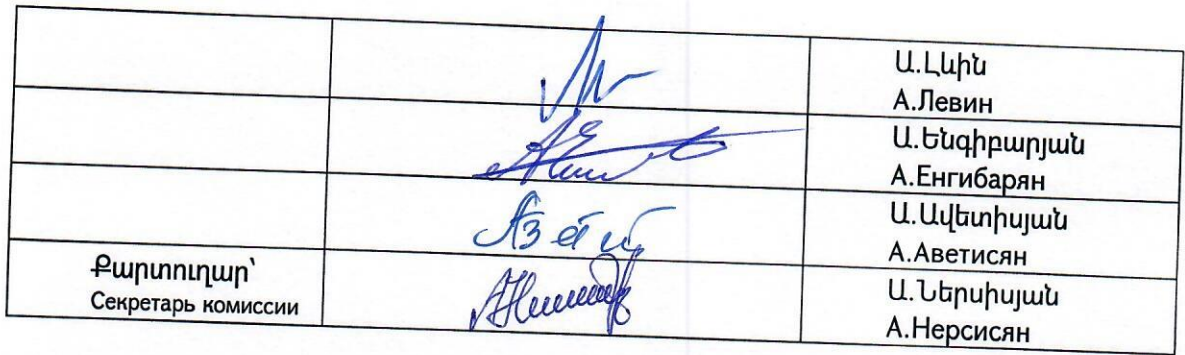 Ա.Լևին
А.Левин
Ա.Ենգիբարյան
А.Енгибарян
Ա.Ավետիսյան
А.Аветисян
Քարտուղար՝
Секретарь комиссии
Ա.Ներսիսյան
А.Нерсисян